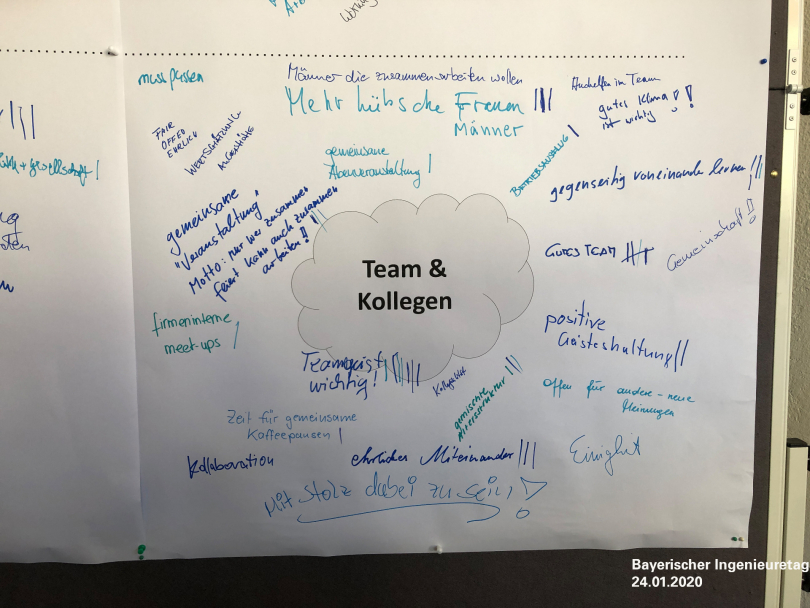 muss passen
Männer die zusammenarbeiten wollen
Mehr hübsche Frauen |||
Männer
Aushelfen im Team
gutes Klima !
ist wichtig !
FAIR
OFFEN
EHRLICH
WERTSCHÄTZUNG
AUGENHÖHE
gemeinsame
Abendveranstaltung |
BETRIEBSAUSFLUG |
gegenseitig voneinander lernen! |||
gemeinsame
"Veranstaltung"
Motto: nur wer zusammen
feiert kann auch zusammen
arbeiten!!
Team &
Kollegen
GUTES TEAM
Gemeinschaft!!
firmeninterne
meet-ups |
positive
Geisteshaltung ||
Teamgeist
wichtig!
Kollegialität
gemischte
Altersstruktur |||
offen für andere - neue
Meinungen
Zeit für gemeinsame
Kaffeepausen |
Kollaboration
ehrliches Miteinander |||
Einigkeit
Mit Stolz dabei zu sein!
Bayerischer Ingenieuretag
24.01.2020